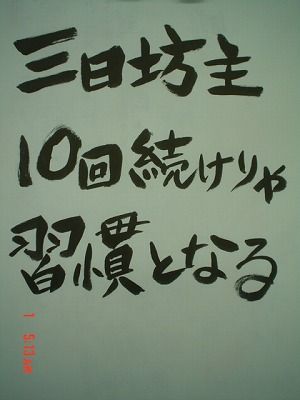 三日坊主
10回続けりゃ
習慣となる
1 5:13 PM